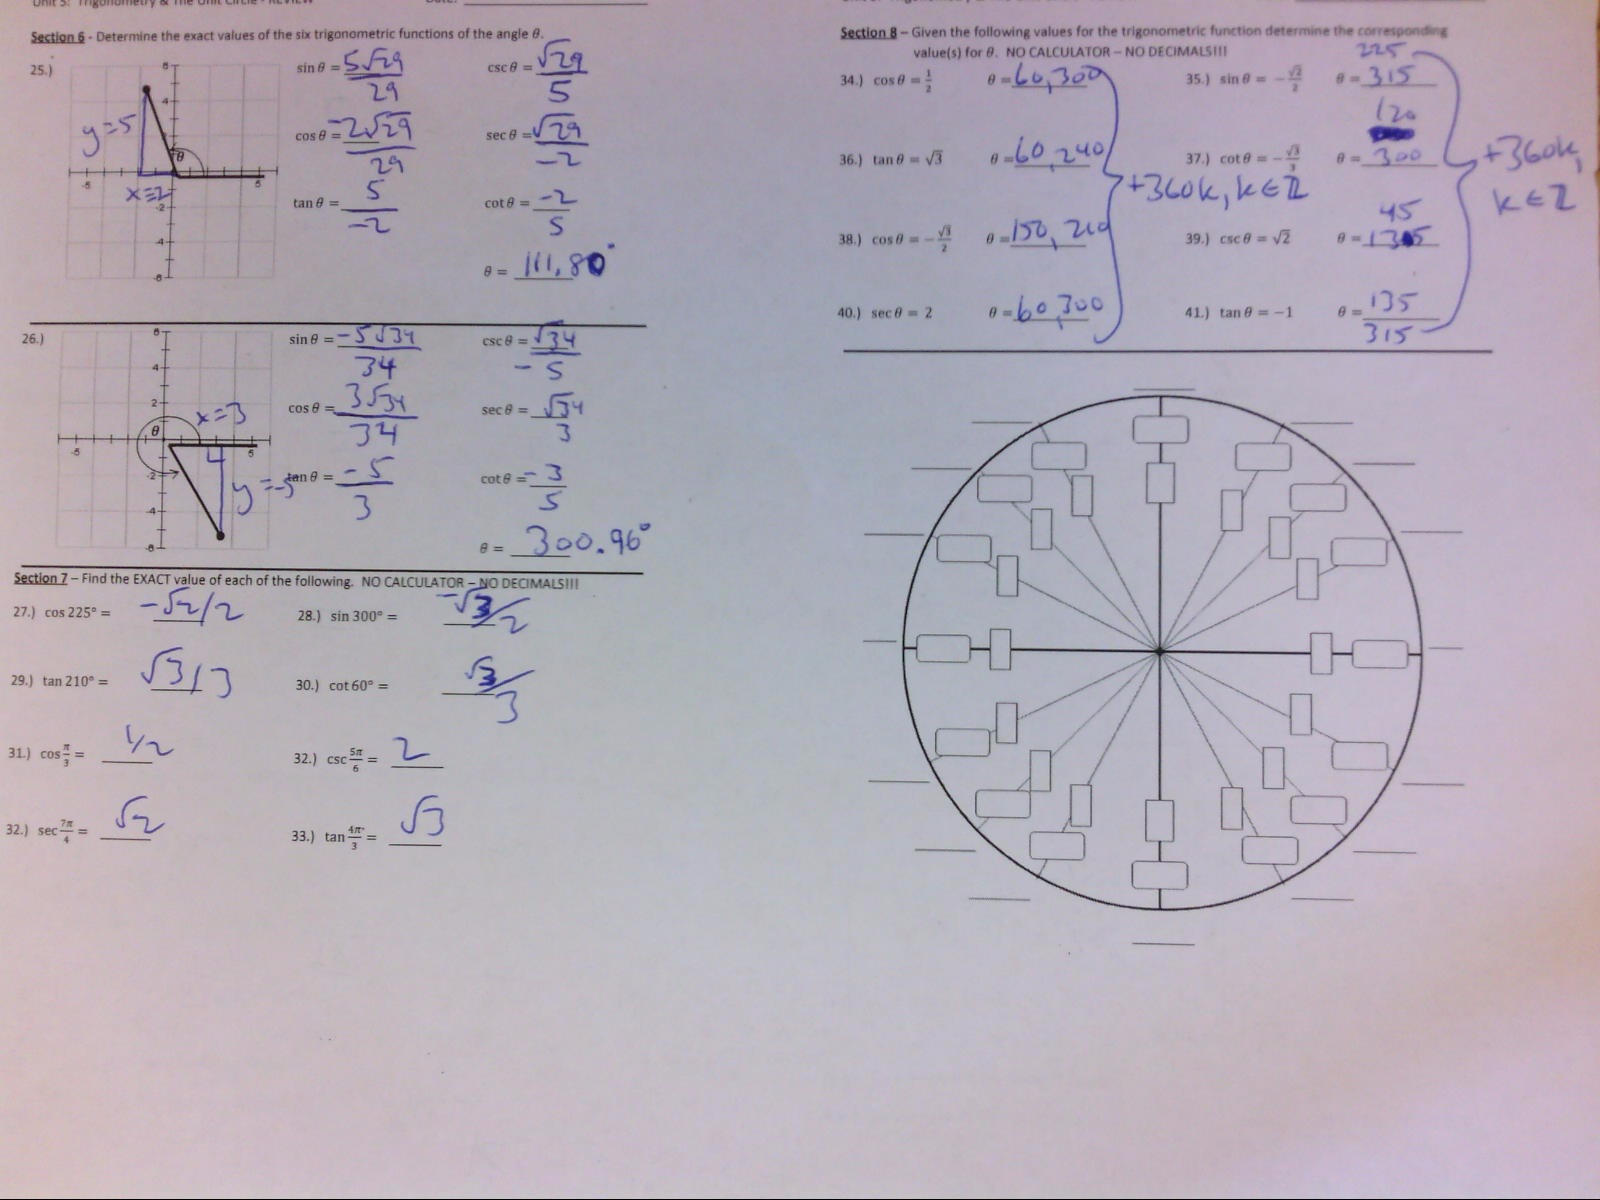 Unit 5: Trigonometry & The Unit Circle - REVIEW Date:
Section 6 - Determine the exact values of the six trigonometric functions of the angle θ.
25.) sin θ = 5√29/29 csc θ = √29/5
y=5 cos θ = -2√29/29 sec θ = √29/-2
x=2 tan θ = 5/-2 cot θ = -2/5
θ = 111.80°
26.) sin θ = -5√34/34 csc θ = √34/-5
x=3 cos θ = 3√34/34 sec θ = √34/3
y=-5 tan θ = -5/3 cot θ = -3/5
θ = 300.96°
Section 7 – Find the EXACT value of each of the following. NO CALCULATOR – NO DECIMALS!!!
27.) cos 225° = -√2/2 28.) sin 300° = -√3/2
29.) tan 210° = √3/3 30.) cot 60° = √3/3
31.) cos π/3 = 1/2 32.) csc 5π/6 = 2
32.) sec 7π/4 = √2 33.) tan 4π/3 = √3
Section 8 – Given the following values for the trigonometric function determine the corresponding
value(s) for θ. NO CALCULATOR – NO DECIMALS!!!
34.) cos θ = 1/2 θ = 60, 300 35.) sin θ = -√2/2 θ = 225 315
36.) tan θ = √3 θ = 60, 240 37.) cot θ = -√3/3 θ = 120 300
+360k, k∈ℤ +360k, k∈ℤ
38.) cos θ = -√3/2 θ = 150, 210 39.) csc θ = √2 θ = 45 135
40.) sec θ = 2 θ = 60, 300 41.) tan θ = -1 θ = 135 315